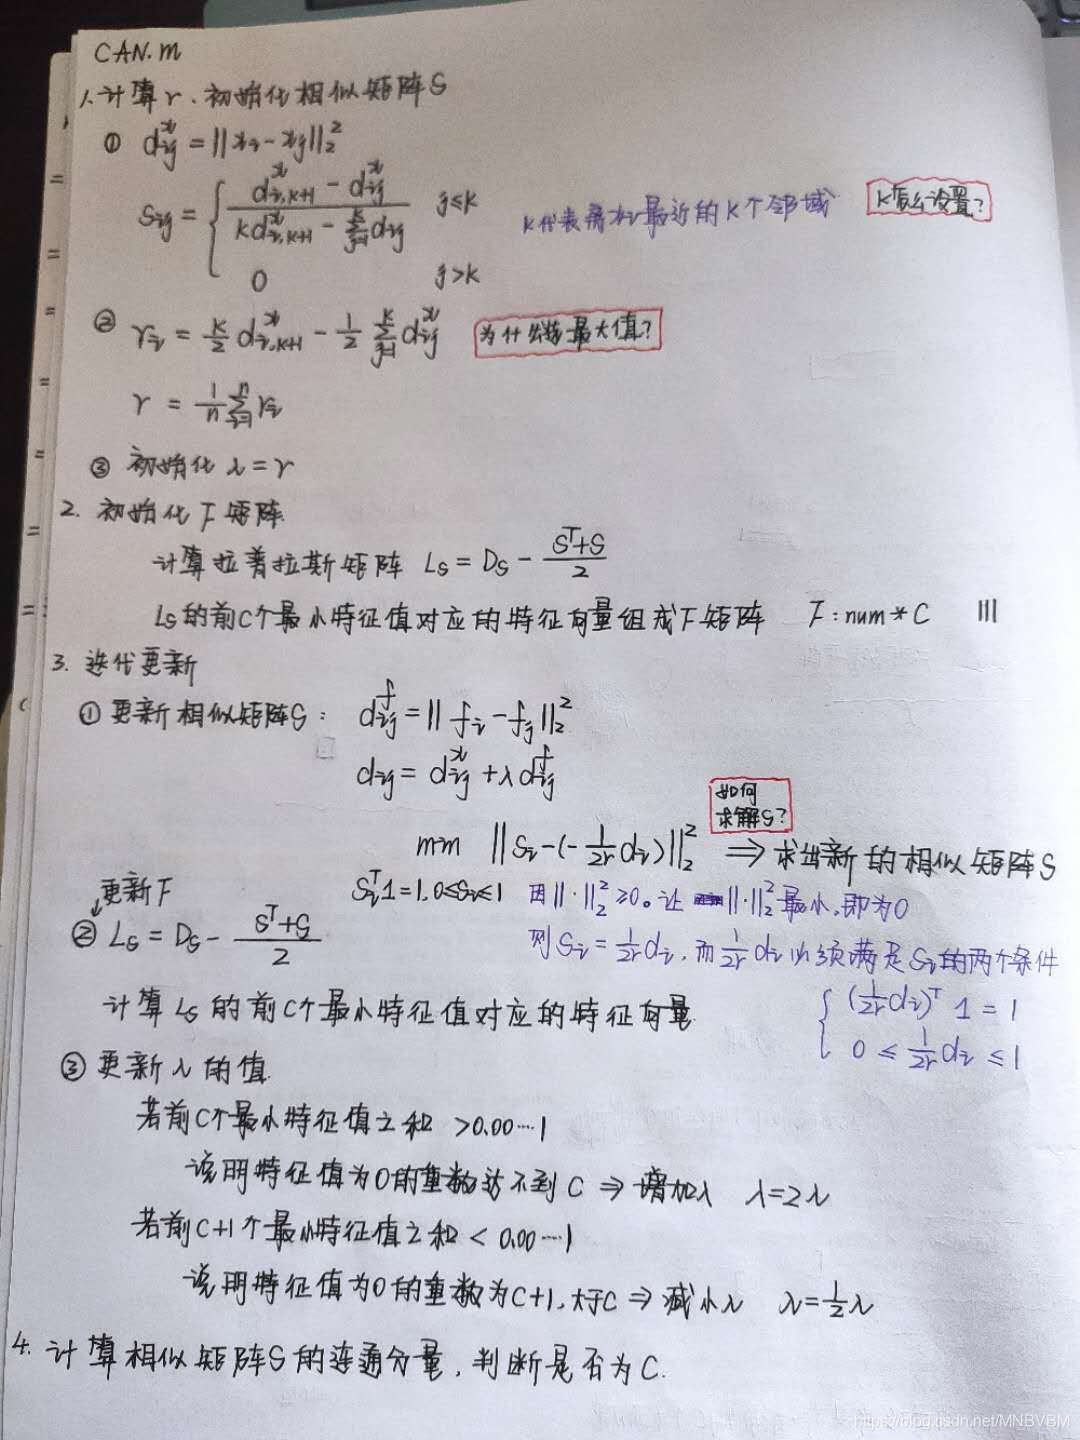 CAN.m
1. 计算r、初始化相似矩阵S
① d_ij^x = ||x_i - x_j||_2^2
S_ij = { (d_{i,k+1}^x - d_ij^x) / (k d_{i,k+1}^x - Σ_{j=1}^k d_ij) j≤k
0 j>k
k代表离xi最近的k个邻域
k怎么设置?
② r_i = k/2 d_{i,k+1}^x - 1/2 Σ_{j=1}^k d_ij^x
为什么取最大值?
r = 1/n Σ_{i=1}^n r_i
③ 初始化 λ=r
2. 初始化F矩阵
计算拉普拉斯矩阵 L_S = D_S - (S^T+S)/2
L_S的前C个最小特征值对应的特征向量组成F矩阵 F:num*C |||
3. 迭代更新
① 更新相似矩阵S: d_ij^f = ||f_i - f_j||_2^2
d_ij = d_ij^x + λ d_ij^f
如何
求解S?
min ||S_i-(-1/2r d_i)||_2^2 ⇒ 求出新的相似矩阵S
S_i^T 1=1, 0≤S_i≤1 因||·||_2^2 ≥0。让 ||·||_2^2 最小,即为0
更新F
② L_S = D_S - (S^T+S)/2
则 S_i = 1/2r d_i,而 1/2r d_i 必须满足S_i的两个条件
{ (1/2r d_i)^T 1 = 1
0 ≤ 1/2r d_i ≤ 1
计算 L_S 的前C个最小特征值对应的特征向量
③ 更新λ的值
若前C个最小特征值之和 >0.00···1
说明特征值为0的重数达不到C ⇒ 增加λ λ=2λ
若前C+1个最小特征值之和 < 0.00···1
说明特征值为0的重数为C+1,大于C ⇒ 减小λ λ=1/2λ
4. 计算相似矩阵S的连通分量,判断是否为C.
https://blog.csdn.net/MNBVBM